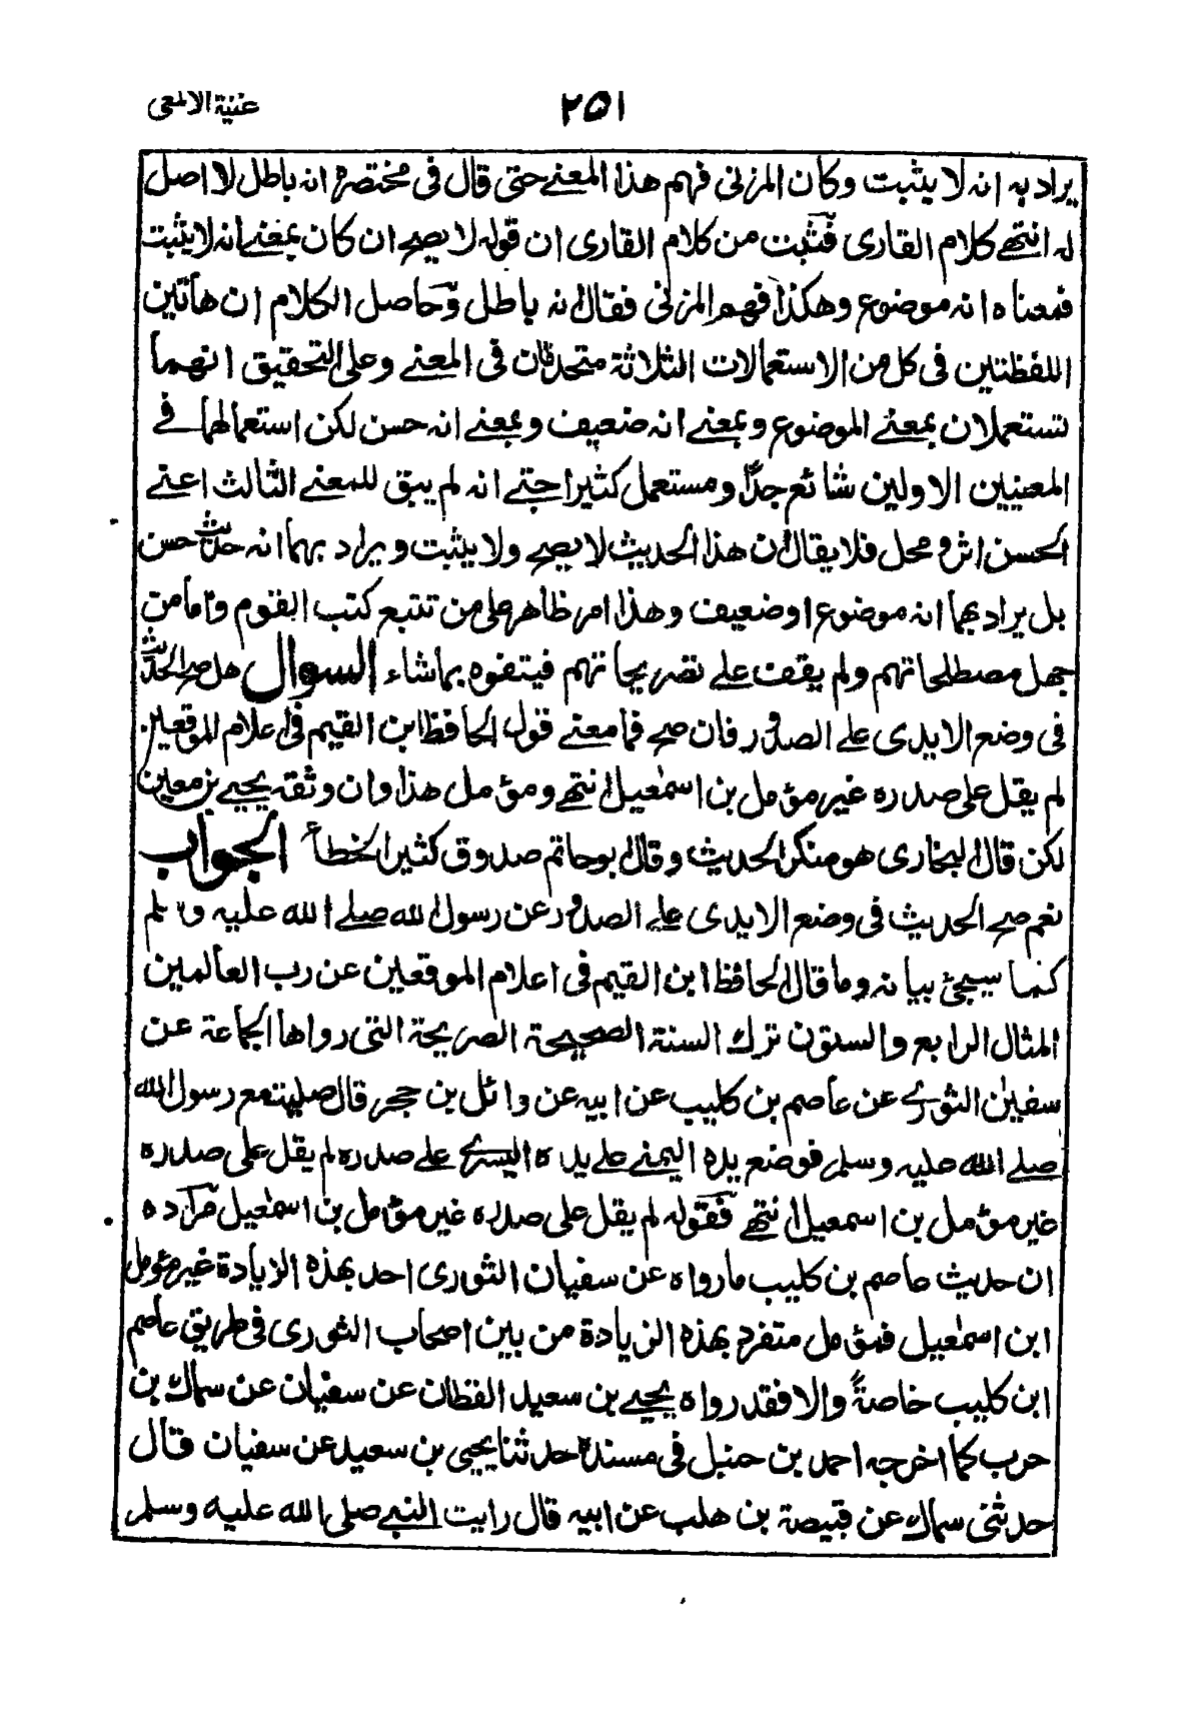 غنية الالمعى
٢٥١
يراد به انه لا يثبت وكان المزنى فهم هذا المعنے حتى قال فى مختصره انه باطل لا اصل
له انتھے كلام القارى فثبت من كلام القارى ان قوله لا يصح ان كان بمعنے انه لا يثبت
فمعناه انه موضوع وهكذا فهم المزنى فقال انه باطل وحاصل الكلام ان هاتين
اللفظتين فى كل من الاستعمالات الثلاثة متحدتان فى المعنے وعلى التحقيق انهما
تستعملان بمعنے الموضوع وبمعنے انه ضعيف وبمعنے انه حسن لكن استعمالهما فے
المعنيين الاولين شائع جدًّا ومستعمل كثيرا حتے انه لم يبق للمعنے الثالث اعنے
الحسن اثر ومحل فلا يقال ان هذا الحديث لا يصح ولا يثبت ويراد بهما انه حديث حسن
بل يراد بهما انه موضوع او ضعيف وهذا امر ظاهر على من تتبع كتب القوم واما من
جهل مصطلحاتهم ولم يقف علے تصريحاتهم فيتفوه بما شاء السوال هل صح الحديث
فى وضع الايدى علے الصدور فان صح فما معنے قول الحافظ ابن القيم فى اعلام الموقعين
لم يقل على صدره غير مؤمل بن اسمٰعيل انتھے ومؤمل هذا وان وثقه يحيے بن معين
لكن قال البخارى هو منكر الحديث وقال ابو حاتم صدوق كثير الخطأ الجواب
نعم صح الحديث فى وضع الايدى علے الصدور عن رسول الله صلے الله عليه وسلم
كما سيجئ بيانه وما قال الحافظ ابن القيم فى اعلام الموقعين عن رب العالمين
المثال الرابع والستون ترك السنة الصحيحة الصريحة التى رواها الجماعة عن
سفيٰن الثورے عن عاصم بن كليب عن ابيه عن وائل بن حجر قال صليت مع رسول الله
صلے الله عليه وسلم فوضع يده اليمنے علے يده اليسرے علے صدره لم يقل على صدره
غير مؤمل بن اسمعيل انتھے فقوله لم يقل على صدره غير مؤمل بن اسمٰعيل مراده
ان حديث عاصم بن كليب ما رواه عن سفيان الثورى احد بهذه الزيادة غير مؤمل
ابن اسمٰعيل فمؤمل متفرد بهذه الزيادة من بين اصحاب الثورى فى طريق عاصم
ابن كليب خاصةً والا فقد رواه يحيے بن سعيد القطان عن سفيان عن سماك بن
حرب كما اخرجه احمد بن حنبل فى مسنده حدثنا يحيى بن سعيد عن سفيان قال
حدثنى سماك عن قبيصة بن هلب عن ابيه قال رايت النبے صلى الله عليه وسلم